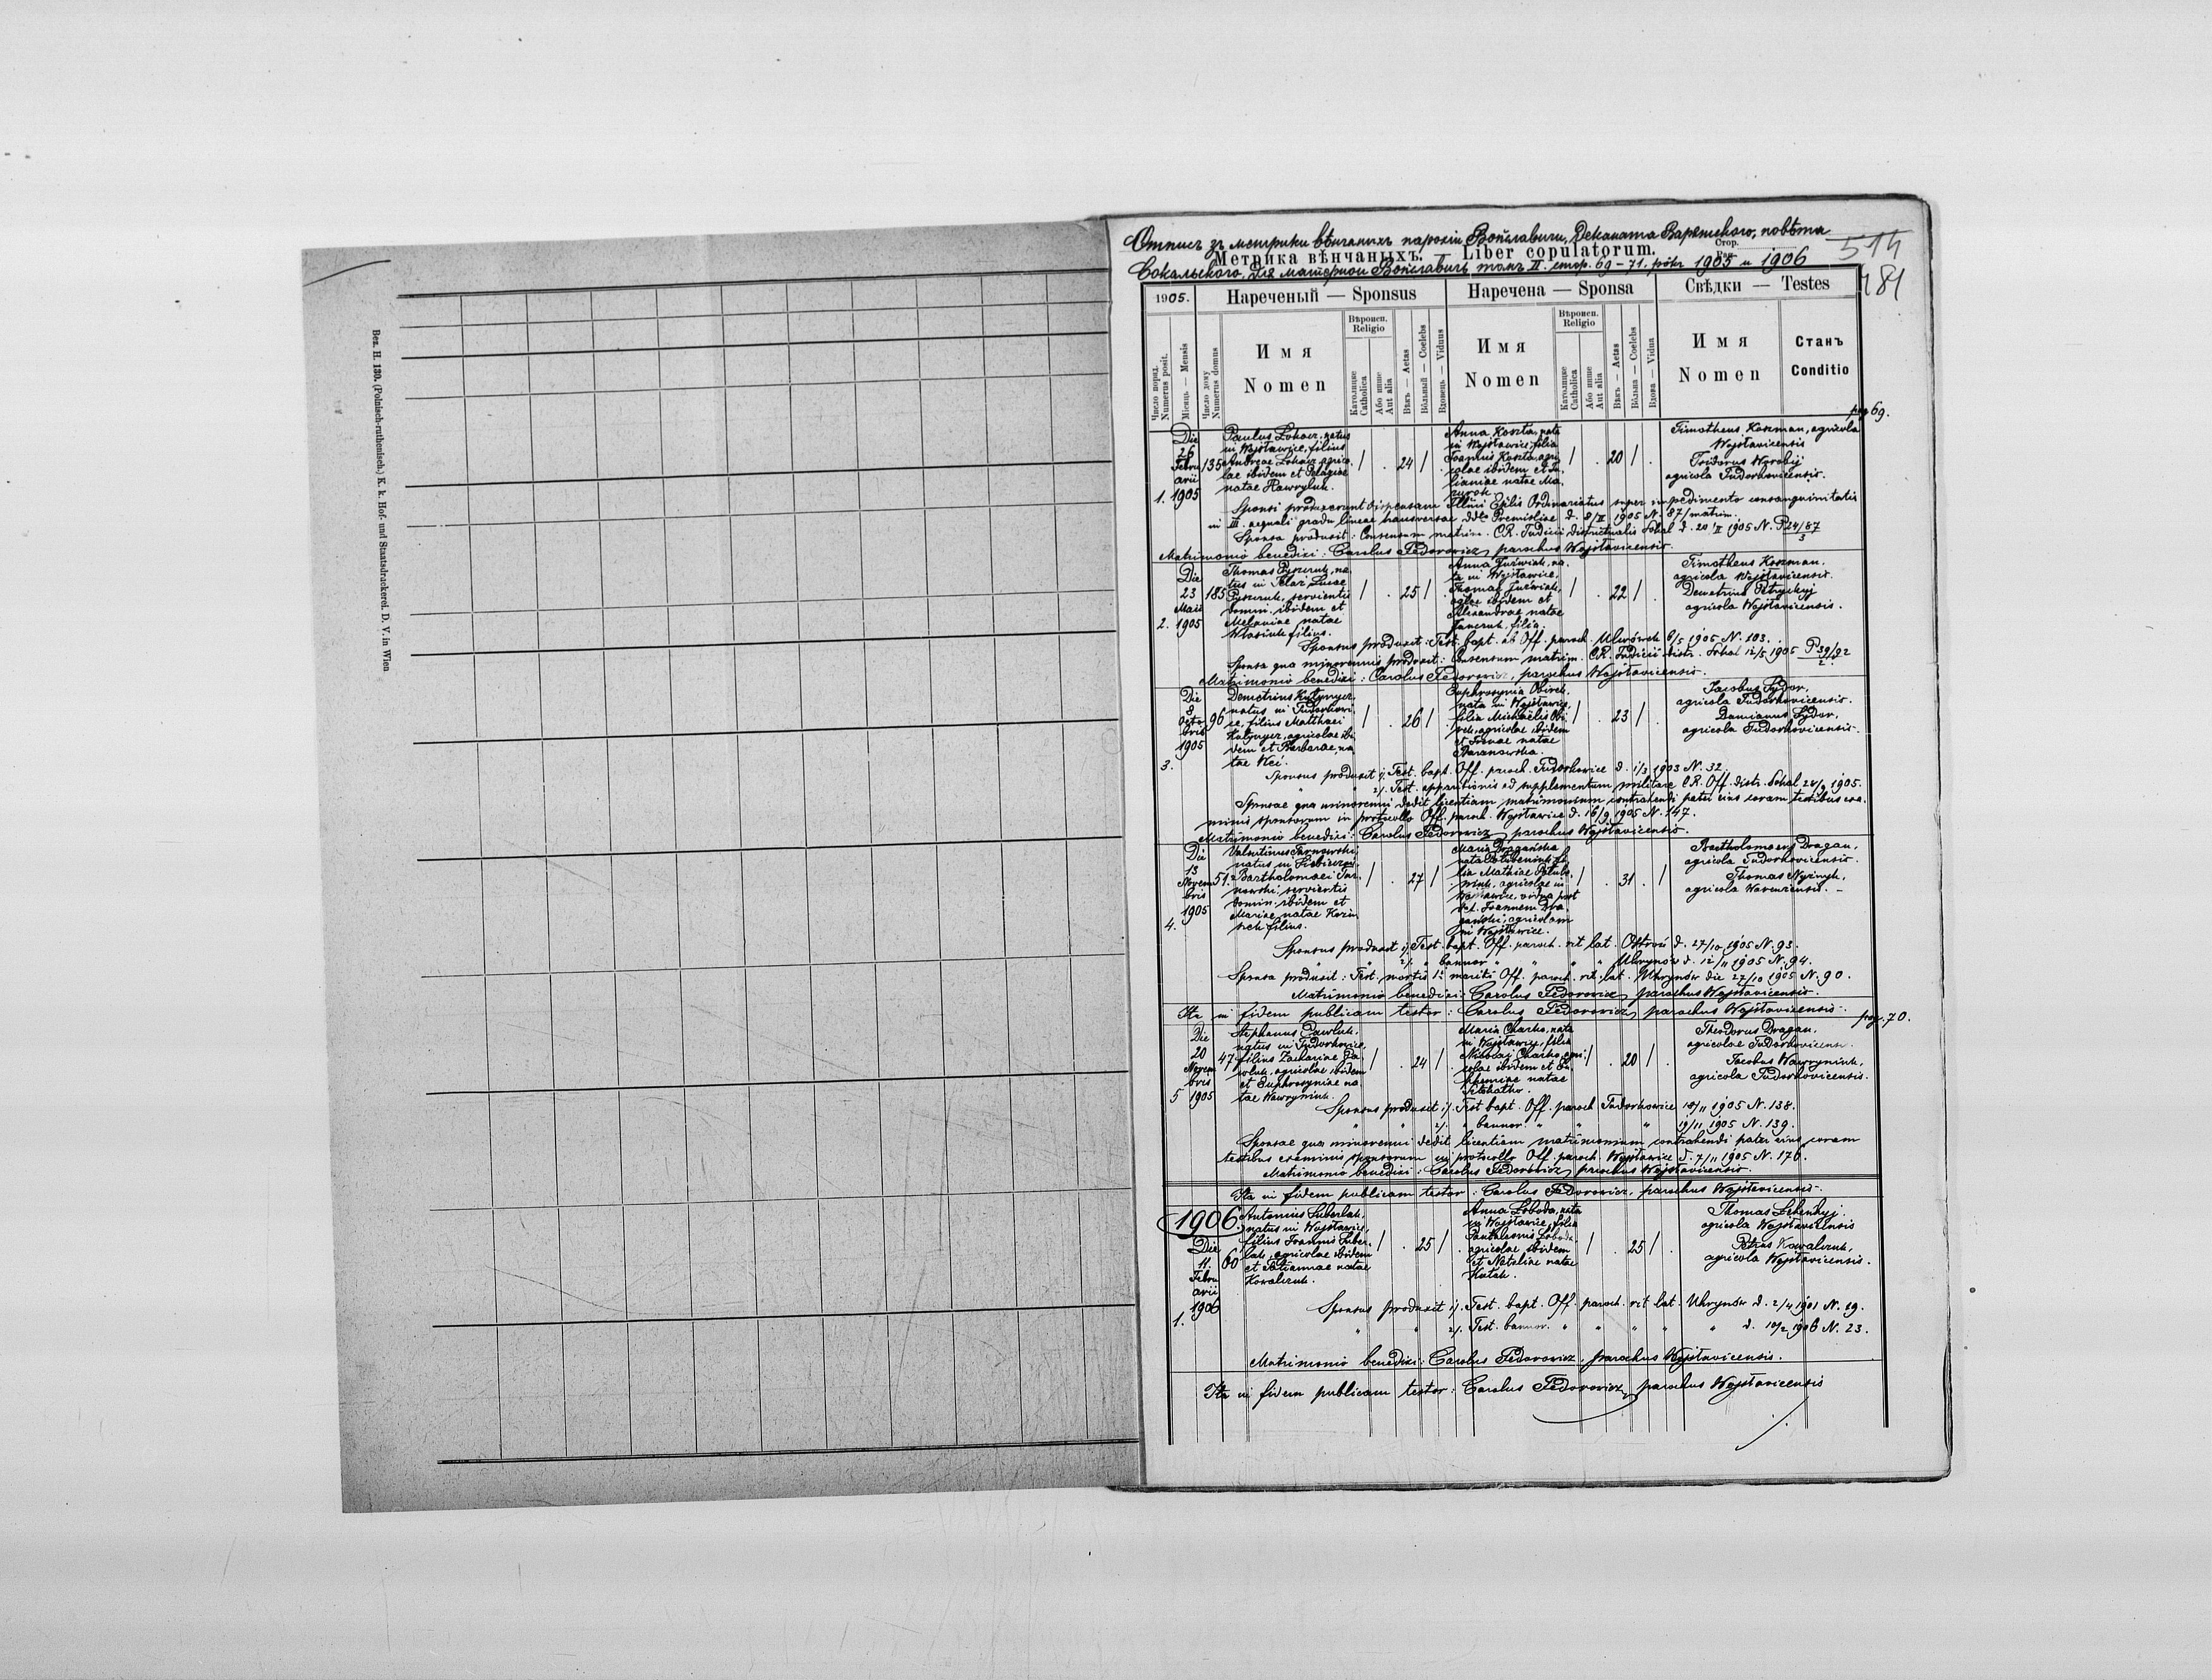 Bez. H. 130. (Polnisch-ruthenisch.) K. k. Hof- und Staatsdruckerei. D. V. in Wien
Отпись зъ метрики вѣнчаныхъ парохіи Войславичи, Деканата Варяжского, повѣта
Метрика вѣнчаныхъ. — Liber copulatorum. Стор. Pag.
Сокальского, для матерной Войславичѣ томъ II. стор. 69-71. рôкъ 1905 и 1906
514
181
1905. Нареченый — Sponsus Наречена — Sponsa Свѣдки — Testes
Число поряд. Numerus posit.
Місяць — Mensis
Число дому Numerus domus
Имя Nomen
Вѣроисп. Religio
Католицке Catholica
Або инше Aut alia
Вѣкъ — Aetas
Вôльный — Coelebs
Вдовець — Viduus
Имя Nomen
Вѣроисп. Religio
Католицке Catholica
Або инше Aut alia
Вѣкъ — Aetas
Вôльна — Coelebs
Вдова — Vidua
Имя Nomen
Станъ Conditio
pag 69.
1. Die 26 Februarii 1905
135
Paulus Lokaicz, natus
in Wojsławice, filius
Andreae Lokaicz, agrico
lae ibidem et Pelagiae
natae Hawryluk.
/ . 24 / .
Anna Koszta, nata
in Wojsławice, filia
Joannis Koszta, agri
colae ibidem et Ju
lianiae natae Ma
zurok
/ . 20 / .
Timotheus Koszman, agricola
Wojsłavicensis
Isidorus Wyrobij
agricola Tudorkovicensis.
Sponsi produxerunt dispensam Illmi Eplis Ordinariatus super impedimento consanguinitatis
in III. aequali gradu lineae transversae ddto Premisliae d. 8/II 1905 N. 87/matrim.
Sponsa produxit: Consensum matrim. C.R. Judicii districtualis Sokal d. 20/II 1905 N. P 24/87 3
Matrimonio benedixi: Carolus Fedorowicz parochus Wojsłavicensis.
2. Die 23 Maii 1905
185
Thomas Pyszczuk, na
tus in Luae
Pyszczuk, servientis
domin. ibidem et
Melaniae natae
Własiuk filius.
/ . 25 / .
Anna Juźwiak, na
ta in Wojsławice,
Thomae Juźwiak,
aglae ibidem et
Alexandrae natae
filia.
/ . 22 / .
Timotheus Koszman.
agricola Wojsłavicensis.
Demetrius Petryckyj
agricola Wojsłavicensis.
Sponsus produxit: Test. bapt. ab Off. paroch. Ulwówek 6/5 1905 N. 103.
Sponsa qua minorennis produxit: Consensum matrim. C.R. Judicii distr. Sokal 12/5 1905 P 39/92 2.
Matrimonio benedixi: Carolus Fedorowicz, parochus Wojsłavicensis.
3. Die 8 Octobris 1905
96
Demetrius Kutynyez
natus in Tudorkowi
ce, filius Matthaei
Kutynyez, agricolae ibi
dem et Barbarae, na
tae Kci.
/ . 26 / .
Euphrosynia Obirek
nata in Wojsławice,
filia Michaëlis Obi
rek, agricolae ibidem
et Irenae natae
Baranowska.
/ . 23 / .
Jacobus Sydor,
agricola Tudorkovicensis.
Damianus Sydor,
agricola Tudorkovicensis.
Sponsus produxit 1/. Test. bapt. Off. paroch. Tudorkowice d. 1/3 1903 N. 32.
" " 2/. Test. apparitionis ad supplementum militare C.R. Off. distr. Sokal 24/9 1905.
Sponsae qua minorenni dedit licentiam matrimonium contrahendi pater eius coram testibus exa.
minis sponsorum in protocollo Off. paroch. Wojsławice d. 16/9 1905 N. 147.
Matrimonio benedixi: Carolus Fedorowicz parochus Wojsłavicensis.
4. Die 13 Novembris 1905
51.
Valentinus Tarnowski,
natus in
Bartholomaei Tar.
nowski, servientis
domin. ibidem et
Mariae natae Kozin
filius.
/ . 27 / .
Maria Dragańska
nata fi
lia Mathiae
agricolae in
vidua post
def. Joannem Dra
gański, agricolam
in Wojsławice.
/ . 31 . /
Bartholomaeus Dragan,
agricola Tudorkovicensis.
Thomas Nyżnyk,
agricola
Sponsus produxit 1/. Test. bapt. Off. paroch. rit. lat. Ostrów d. 27/10 1905 N. 93.
" " 2/. " bannor. " " " " Uhrynów d. 12/11 1905 N. 94.
Sponsa produxit: Test. mortis 1i mariti Off. paroch. rit. lat. Uhrynów die 27/10 1905 N. 90.
Matrimonio benedixi: Carolus Fedorowicz parochus Wojsłavicensis.
Ita in fidem publicam testor: Carolus Fedorowicz parochus Wojsłavicensis.
pag. 70.
5 Die 20 Novembris 1905
47
Stephanus Pawluk,
natus in Tudorkowice,
filius Zachariae Pa
wluk, agricolae ibidem
et Euphrosyniae na
tae Wawryniuk.
/ . 24 / .
Maria Charko, nata
in Wojsławice, filia
Nikolai Charko, agri
colae ibidem et Eu
phemiae natae
/ . 20 / .
Theodorus Dragan,
agricolae Tudorkovicensis.
Jacobus Wawryniuk,
agricola Tudorkovicensis.
Sponsus produxit 1/. Test bapt. Off. paroch Tudorkowice 18/11 1905 N. 138.
" " 2/. " bannor. " " " 19/11 1905 N. 139.
Sponsae qua minorenni dedit licentiam matrimonium contrahendi pater eius coram
testibus examinis sponsorum in protocollo Off. paroch. Wojsławice d. 7/11 1905 N. 176.
Matrimonio benedixi: Carolus Fedorowicz parochus Wojsłavicensis.
Ita in fidem publicam testor: Carolus Fedorowicz, parochus Wojsłavicensis.
1906.
1. Die 11. Februarii 1906
60
Antonius Suberlak,
natus in Wojsławice,
filius Joannis Suber.
lak, agricolae ibidem
et Tatiannae natae
Kowalczuk.
/ . 25 / .
Anna Łoboda, nata
in Wojsławice, filia
Pantaleonis Łoboda
agricolae ibidem
et Nataliae natae
Kutak.
/ . 25 / .
Thomas Lebenkyj.
agricola Wojsłavicensis
Petrus Kowalczuk,
agricola Wojsłavicensis.
Sponsus produxit 1/. Test. bapt. Off. paroch. rit. lat. Uhrynów d. 2/4 1901 N. 19.
" " 2/. Test. bannor. " " " " " d. 10/2 1906 N. 23.
Matrimonio benedixi: Carolus Fedorowicz, parochus Wojsłavicensis.
Ita in fidem publicam testor: Carolus Fedorowicz parochus Wojsłavicensis